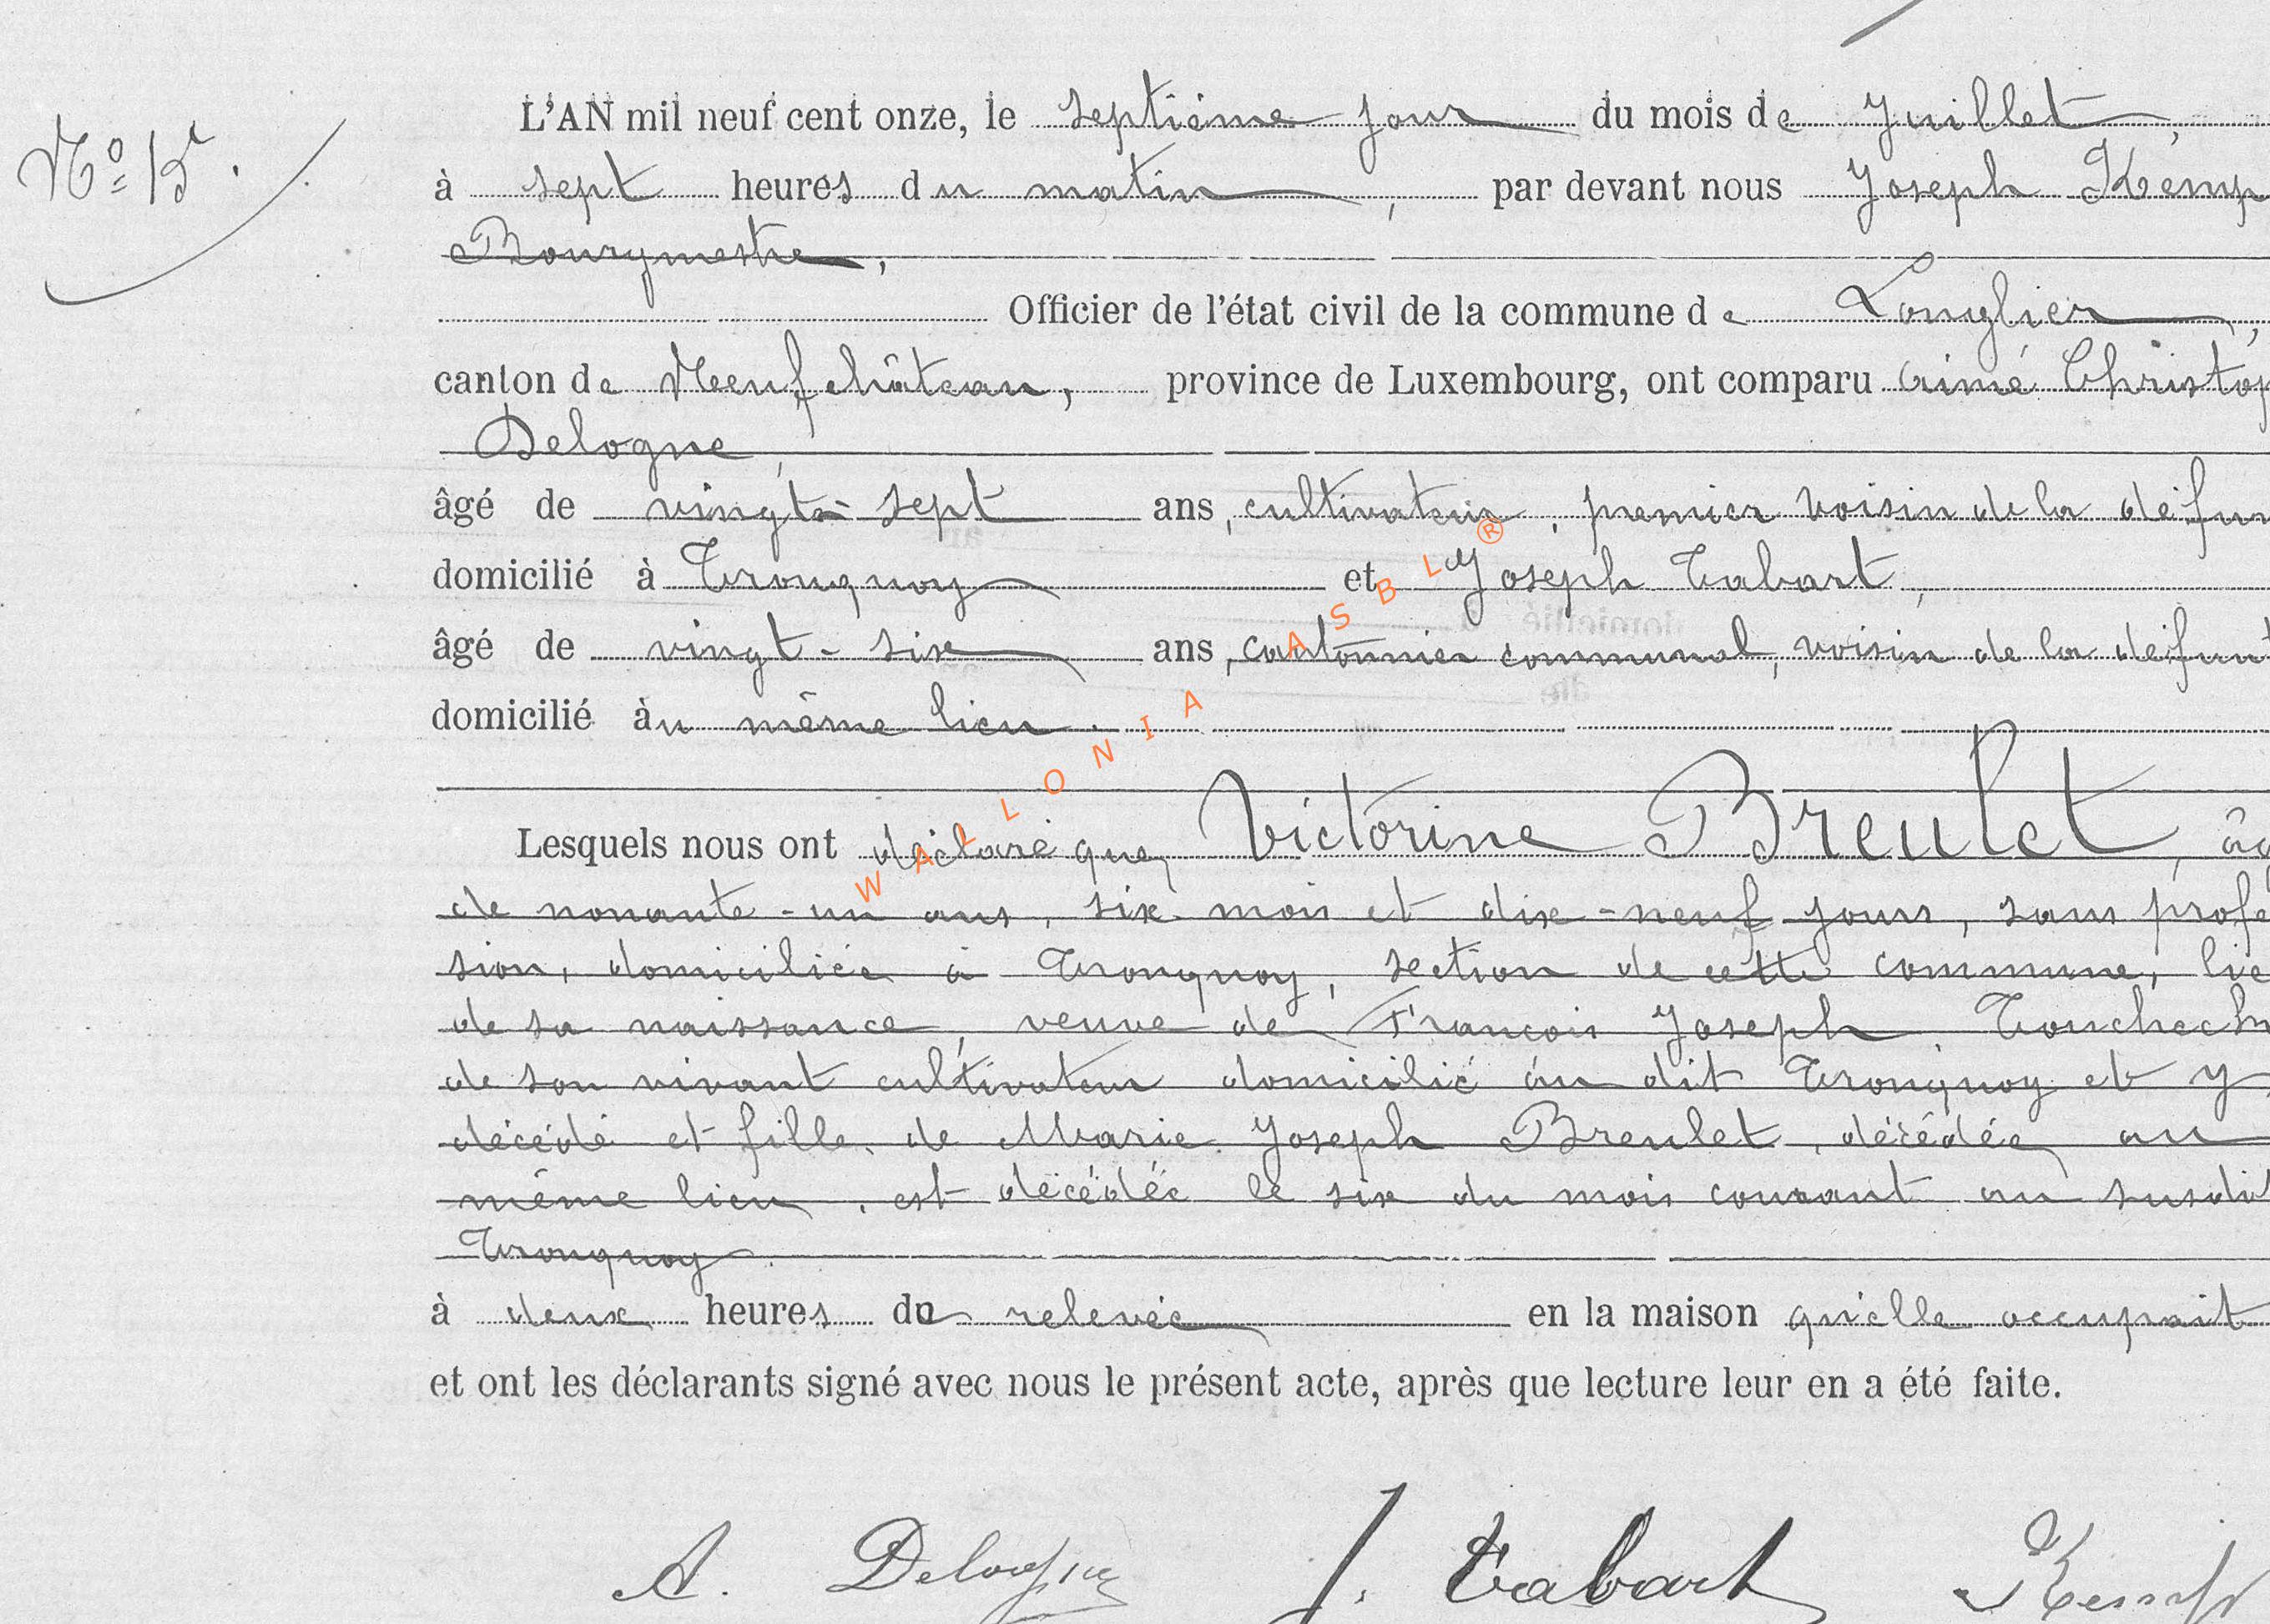 L'AN mil neuf cent onze, le septième jour du mois de Juillet,
Nº 15.
à sept heures du matin, par devant nous Joseph Kemp
Bourgmestre,
Officier de l'état civil de la commune de Longlier,
canton de Neufchâteau, province de Luxembourg, ont comparu Aimé Christop
Delogne,
âgé de vingt-sept ans, cultivateur, premier voisin de la défun
domicilié à Tronquoy et Joseph Tabart,
âgé de vingt-six ans, cantonnier communal, voisin de la défunt
domicilié àu même lieu.
Lesquels nous ont déclaré que, Victorine Breulet, âg
de nonante-un ans, six mois et dix-neuf jours, sans profe
sion, domiciliée à Tronquoy, section de cette commune, lie
de sa naissance, veuve de François Joseph Touchech
de son vivant cultivateur domicilié au dit Tronquoy et y
décédé et fille de Marie Joseph Breulet, décédée au
même lieu, est décédée le six du mois courant au susdit
Tronquoy
à deux heures de relevée en la maison qu'elle occupait
et ont les déclarants signé avec nous le présent acte, après que lecture leur en a été faite.
A. Delogne J. Tabart Kemp
WALLONIA ASBL®